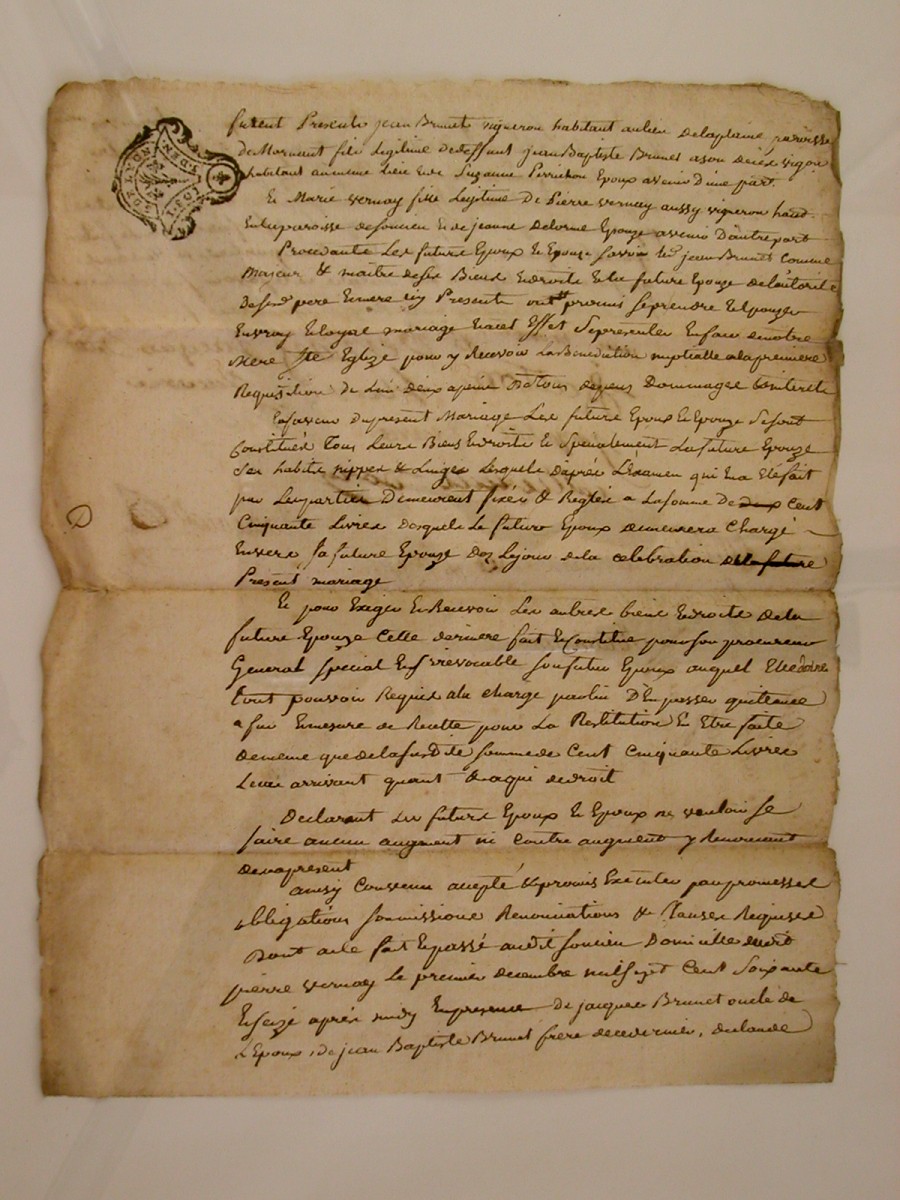 furent Presents jean Brunet vigneron habitant au lieu delaplaine paroisse
de Mornant fils legitime de deffunt jean Baptiste Brunet a son deces vigon
habitant au meme lieu et de Suzanne Epoux avenir d'une part.
Et Marie vernay fille Legitime de Pierre vernay aussy vigneron habt
en la paroisse de soucieu et de jeanne delorme Epouze avenir D'autre part
Procedants Les futurs Epoux et Epouze savoir led jean Brunet comme
Majeur & maitre de ses Biens et droits et la future Epouze de l'autorité
de sesd pere et mere icy Presents ont promis se prendre et Epouzer
en vray et loyal mariage et a cet Effet se presenter en face de notre
Mere Ste Eglize pour y Recevoir La Benediction nuptialle a la premiere
Requisition de L'un deux a peine de tous depens Dommages & interets
En faveur du present Mariage Les futurs Epoux et Epouze se sont
Constitués Tous Leurs Biens et droits et Specialement La future Epouze
Ses habits nippes & Linges Lesquels d'apres L'Examen qui en a été fait
par Les parties Demeurent fixés & Reglés a La somme De deux Cent
Cinquante Livres desquels Le futur Epoux demeurera Chargé
Envers sa future Epouze dez Le jour de la celebration de la future
Present mariage
Et pour Exiger et Recevoir Les autres biens et droits de la
future Epouze Celle derniere fait et Constitue pour son procureur
General special et irrévocable son futur Epoux auquel Elle donne
tout pouvoir Requis a la charge par lui D'En passer quittance
a fur et mesure de Recette pour La Restitution En Etre faite
de meme que de la susdite somme de Cent Cinquante Livres
Le cas arrivant quant & a qui de droit
Declarant Les futurs Epoux et Epoux ne vouloir se
faire aucun augment ni Contre augment y Renoncant
des a present
ainsy Convenu accepté & promis Executer par promesses
obligations soumissions Renonciations & Clauses Requises
Dont acte fait et passé audit soucieu Domicille dudit
pierre vernay Le premier decembre mil sept Cent soixante
Et seize après midy En presence de jacques Brunet oncle de
L'Epoux, de jean Baptiste Brunet frere de ce dernier, de